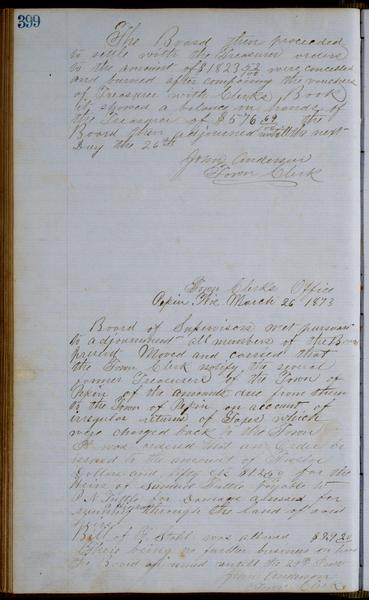 399
The Board then proceeded
to settle with the Treasurer orders
to the amount of $1823 were cancelled
and burned after comparing the vouchers
of Treasurer with Clerks Book
it showed a balance on hands of
the Treasurer of $576 the
Board then adjourned until the next
Day the 26th
John Anderson
Town Clerk
Town Clerks Office
Pepin Wis March 26 1873
Board of Supervisors met pursuant
to adjournment all members of the
present Moved and carried that
the Town Clerk notify the several
former Treasurers of the Town of
Pepin of the amounts due from them
to the Town of Pepin on account of
irregular returns of Taxes which
were charged back to the Town
It was ordered that an Order be
issued to the amount of Twelve
Dollars and fifty cts $12.50 for the
Heirs of Tuttle payable to
P N Tuttle for Damage assessed for
running through the land of said
Bill of Stahl was allowed
There being no further business on hand
the Board adjourned until the 29th
John Anderson
Town Clerk